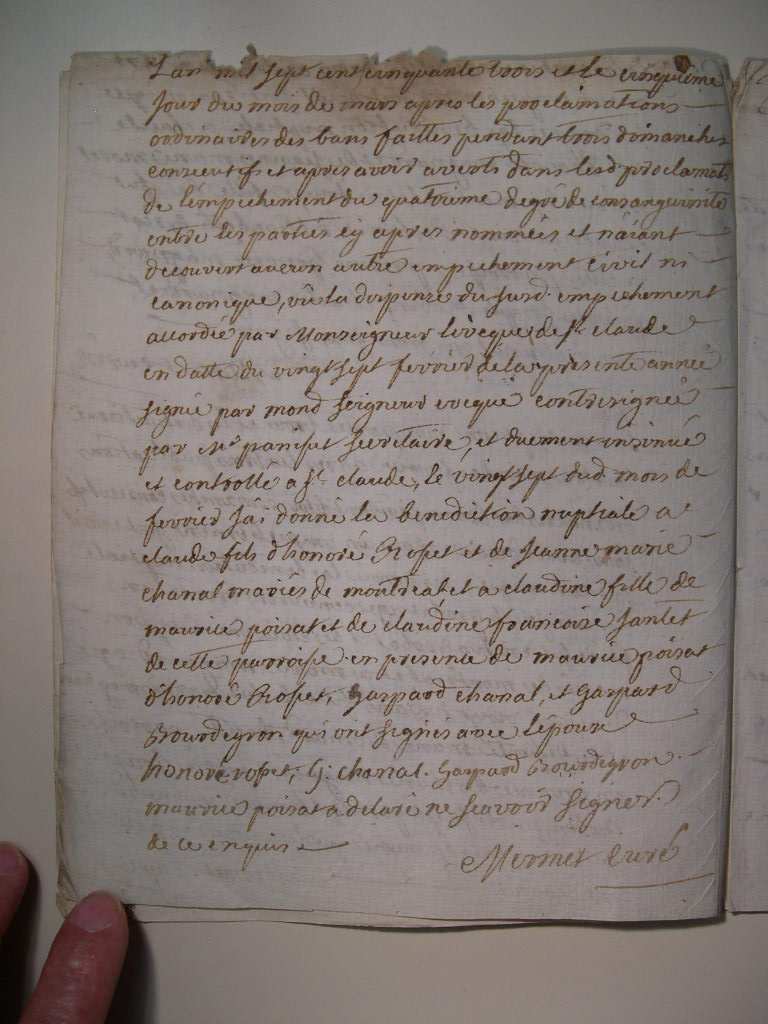 Lan mil sept cent cinquante trois et le cinquieme
jour du mois de mars apres les proclamations
ordinaires des bans faittes pendant trois dimanches
consecutifs et apres avoir averti dans lesd. proclamat
de l'empechement du quatrieme degré de consanguinité
entre les parties cy apres nommées et n'aiant
decouvert aucun autre empechement civil ni
canonique, vû la dispense du susd. empechement
accordée par Monseigneur l'eveque de st. claude
en datte du vingt sept fevrier de la presente année
signée par mond seigneur eveque contresignée
par Mr panisset secretaire, et duement insinué
et controllé a st. claude, le vingt sept dud. mois de
fevrier j'ai donné la benediction nuptiale a
claude fils d'honoré Rosset et de Jeanne marie
chanal mariés de montreal et a claudine fille de
maurice poizat et de claudine francoise
de cette parroisse en presence de maurice poizat
d'honoré Rosset, Gaspard chanal, et Gaspard
Bourdegron qui ont signés avec l'époux
honoré rosset, G: chanal. Gaspard Bourdegron.
maurice poizat a delaré ne scavoir signer
de ce enquis
Mermet curé